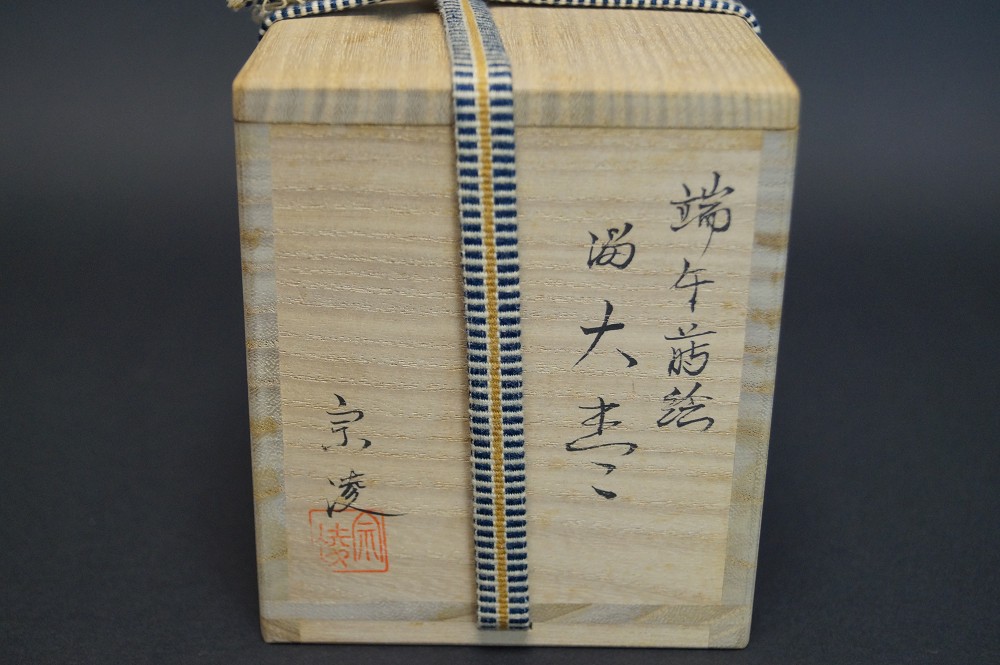 端午蒔絵
溜大棗
宗凌
宗凌